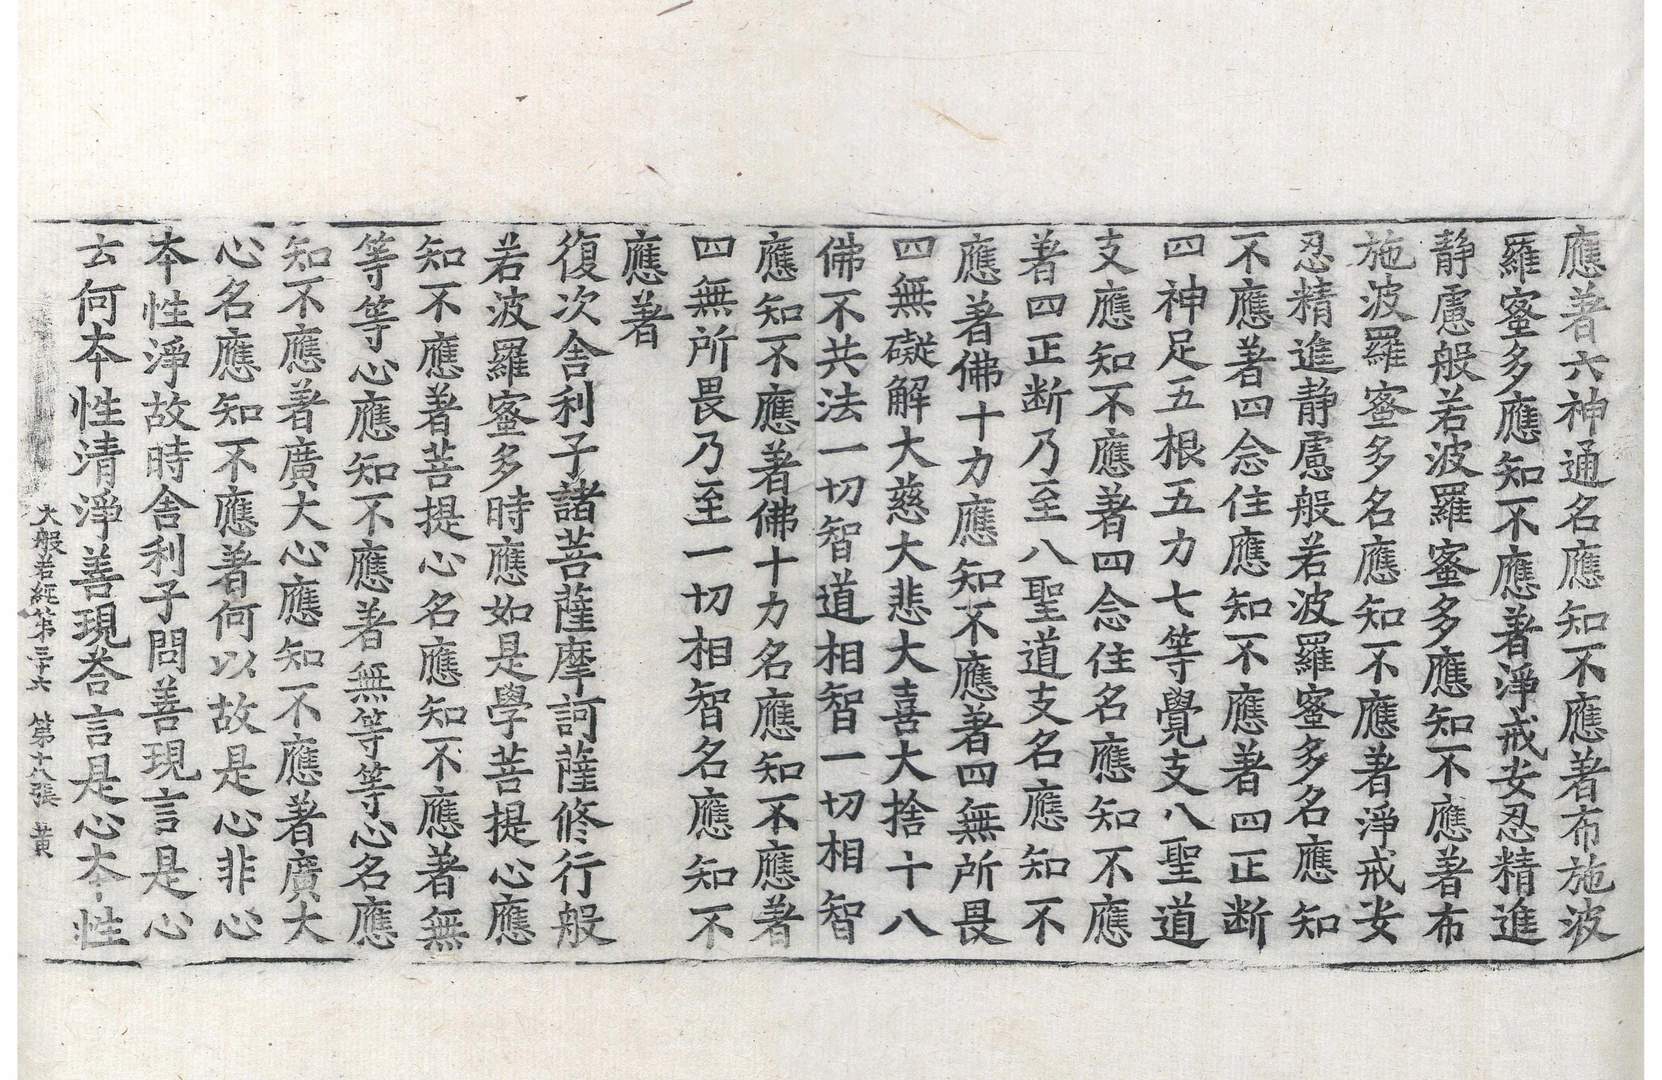 應著六神通名應知不應著布施波
羅蜜多應知不應著淨戒安忍精進
靜慮般若波羅蜜多應知不應著布
施波羅蜜多名應知不應著淨戒安
忍精進靜慮般若波羅蜜多名應知
不應著四念住應知不應著四正断
四神足五根五力七等覺支八聖道
支應知不應著四念住名應知不應
著四正断乃至八聖道支名應知不
應著佛十力應知不應著四無所畏
四無礙解大慈大悲大喜大捨十八
佛不共法一切智道相智一切相智
應知不應著佛十力名應知不應著
四無所畏乃至一切相智名應知不
應著
復次舍利子諸菩薩摩訶薩修行般
若波羅蜜多時應如是學菩提心應
知不應著菩提心名應知不應著無
等等心應知不應著無等等心名應
知不應著廣大心應知不應著廣大
心名應知不應著何以故是心非心
本性淨故時舍利子問善現言是心
云何本性清淨善現答言是心本性
大般若經第三十六 第十八張 黃